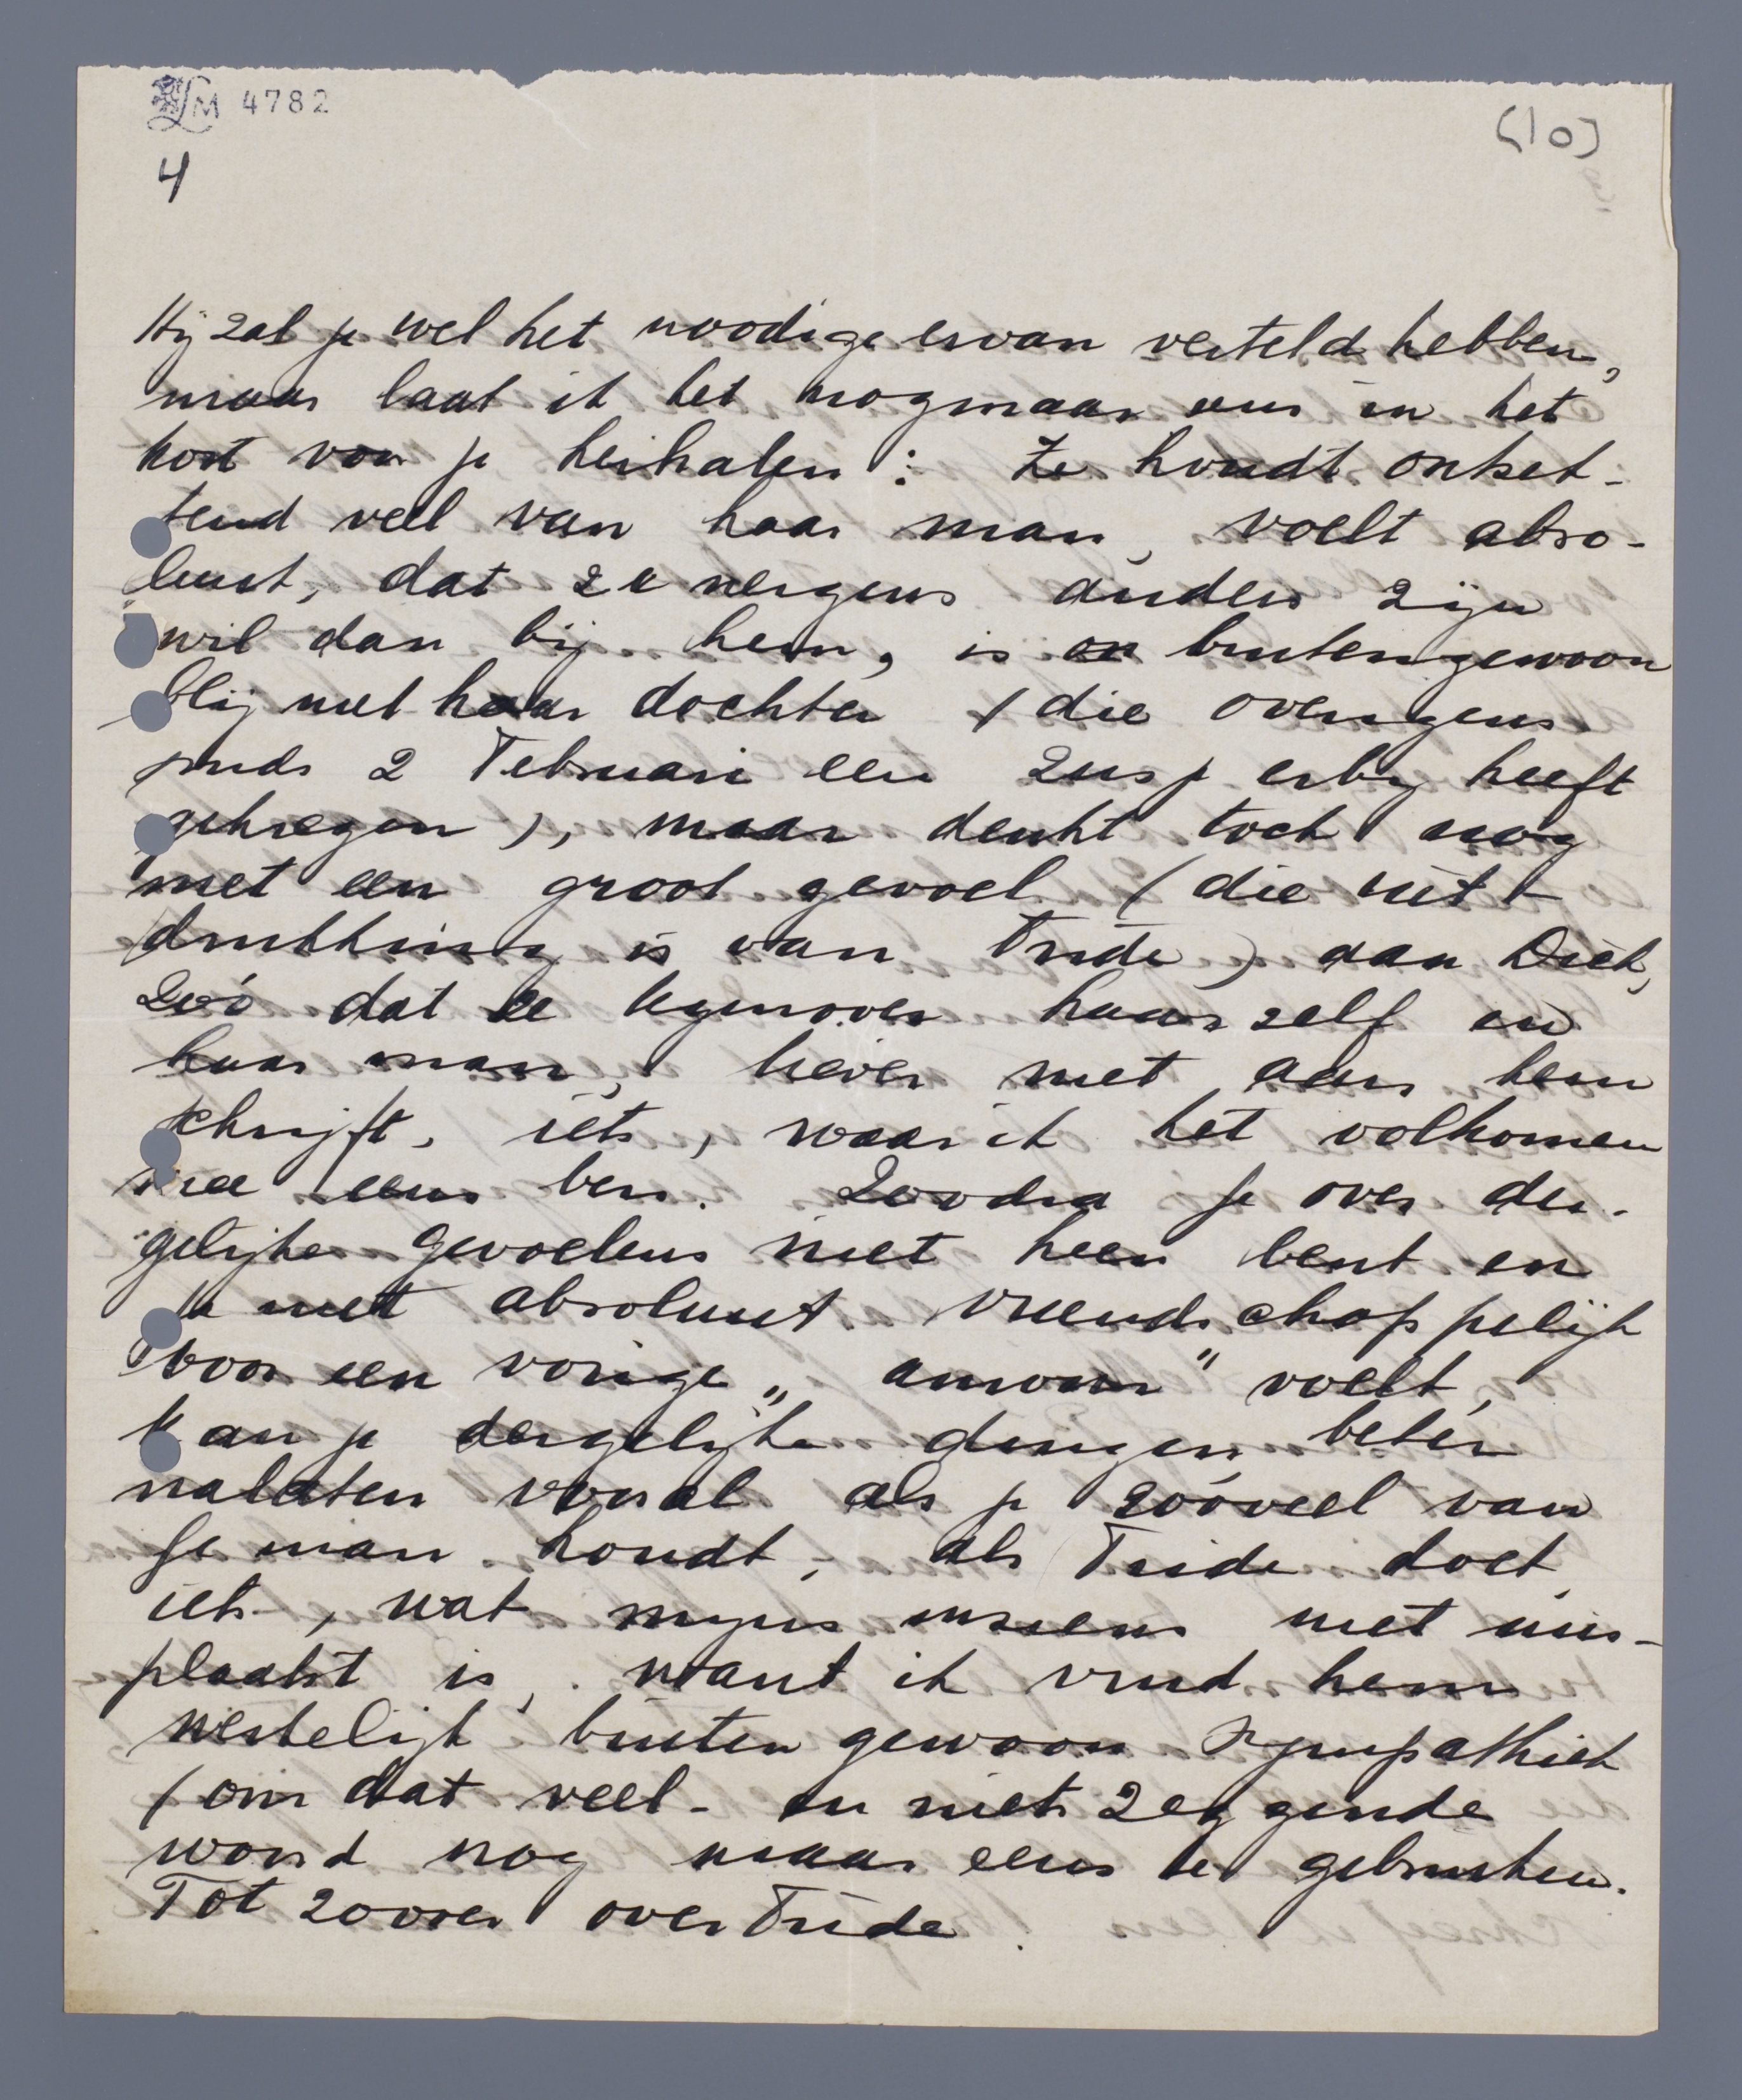 LM 4782
(10)
4
Hij zal je wel het noodige ervan verteld hebben,
maar laat ik het nogmaar eens in het
kort voor je herhalen: Ze houdt ontzet-
tend veel van haar man, voelt abso-
luut, dat ze nergens anders zijn
wil dan bij hem, is buitengewoon
blij met haar dochter (die overigens
sinds 2 Februari een zusje erbij heeft
gekregen), maar denkt toch nog
met een groot gevoel (die uit-
drukking is van Fride) aan Dick,
zoó dat ze tegenover haar zelf en
haar man, liever niet aan hem
schrijft, iets, waar ik het volkomen
mee eens ben. Zoodra je over der-
gelijke gevoelens niet heen bent en
je niet absoluut vriendschappelijk
voor een vorige „amour" voelt,
kan je dergelijke dingen beter
nalaten vooral als je zóóveel van
je man houdt, als Fride doet,
iets, wat mijns inziens niet mis-
plaatst is, want ik vind hem
werkelijk buiten gewoon sympathiek
(om dat veel- en niets zeggende
woord nog maar eens te gebruiken.
Tot zoover over Fride.